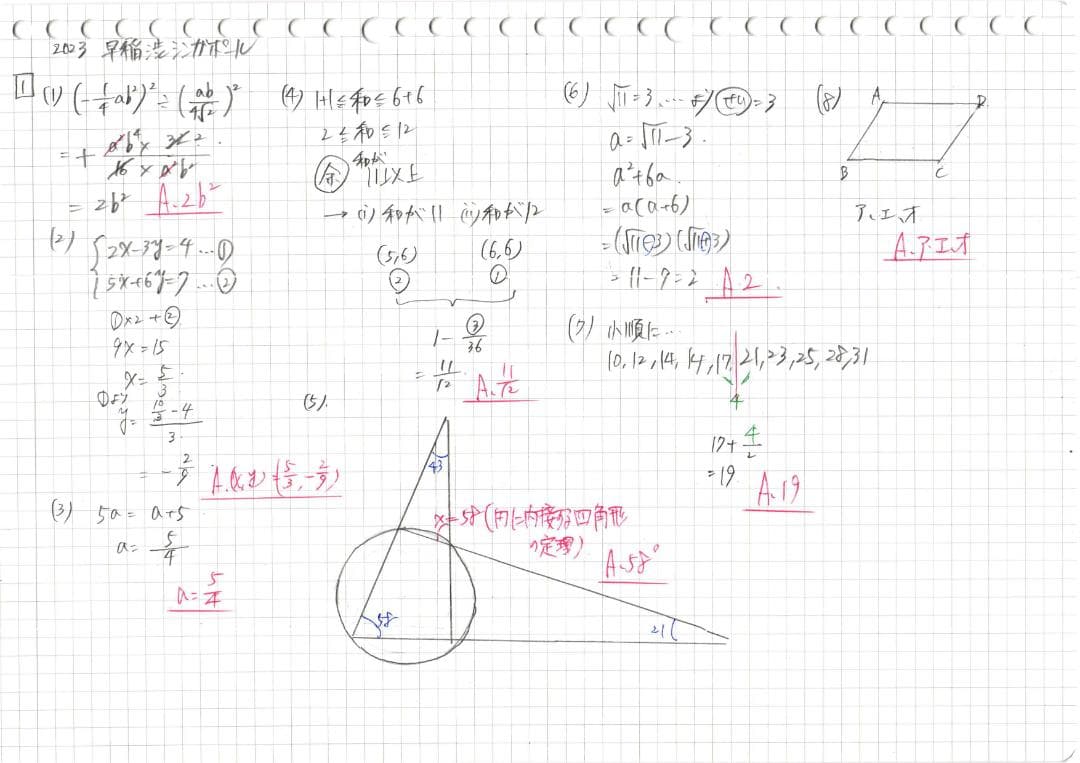 2023 早稲渋シンガポール
1
(1) (-1/4 ab²)² ÷ (ab/4√2)²
= + a²b⁴ × 32 2 / 16 × a²b²
= 2b² A. 2b²
(2) { 2x-3y=4 … ①
5x+6y=7 … ②
①×2+②
9x=15
x= 5/3
①より y= (10/3 - 4)/3
= - 2/9 A. (x,y)=(5/3, -2/9)
(3) 5a= a+5
a= 5/4
a= 5/4
(4) 1+1≦和≦6+6
2≦和≦12
余 和が11以上
→ (i) 和が11 (ii) 和が12
(5,6) (6,6)
② ①
1- ③/36
= 11/12 A. 11/12
(5).
43
x=58 (円に内接する四角形
の定理)
A. 58°
58
21
(6) √11=3.… より =3
a=√11-3.
a²+6a.
=a(a+6)
=(√11-3)(√11+3)
=11-9=2 A. 2.
(7) 小順に…
10, 12, 14, 14, 17, 21, 23, 25, 28, 31
4
17+ 4/2
=19 A. 19
(8) A D
B C
ア、エ、オ
A. ア.エ.オ